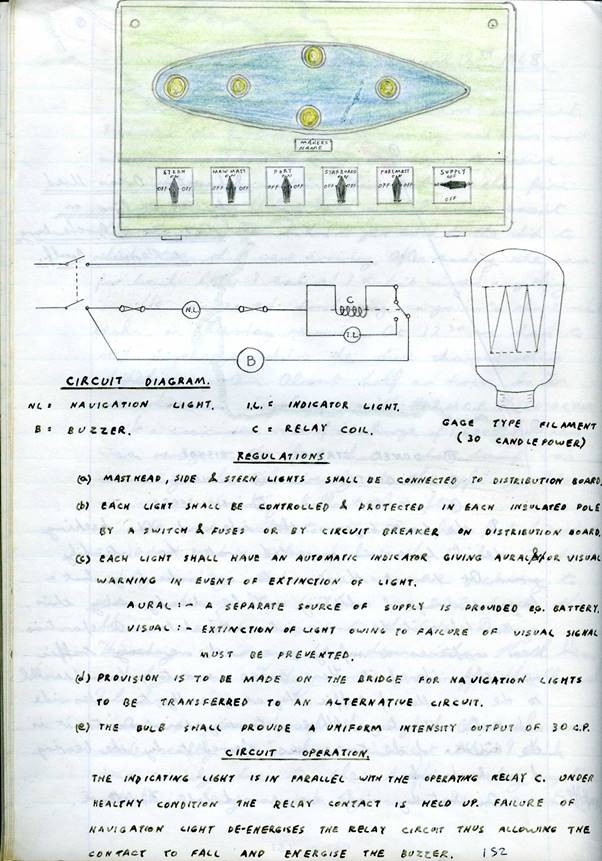 MAKERS
NAME
STERN MAIN MAST PORT STARBOARD FOREMAST SUPPLY
ON ON ON ON ON ON
OFF OFF OFF OFF OFF OFF OFF OFF OFF OFF
OFF
N.L
C
I.L
B
CIRCUIT DIAGRAM.
NL = NAVIGATION LIGHT. I.L. = INDICATOR LIGHT.
B = BUZZER. C = RELAY COIL.
GAGE TYPE FILAMENT
(30 CANDLEPOWER)
REGULATIONS
(a) MASTHEAD, SIDE & STERN LIGHTS SHALL BE CONNECTED TO DISTRIBUTION BOARD.
(b) EACH LIGHT SHALL BE CONTROLLED & PROTECTED IN EACH INSULATED POLE
BY A SWITCH & FUSES OR BY CIRCUIT BREAKER ON DISTRIBUTION BOARD.
(c) EACH LIGHT SHALL HAVE AN AUTOMATIC INDICATOR GIVING AURAL &/OR VISUAL
WARNING IN EVENT OF EXTINCTION OF LIGHT.
AURAL :- A SEPARATE SOURCE OF SUPPLY IS PROVIDED eg. BATTERY.
VISUAL :- EXTINCTION OF LIGHT OWING TO FAILURE OF VISUAL SIGNAL
MUST BE PREVENTED.
(d) PROVISION IS TO BE MADE ON THE BRIDGE FOR NAVIGATION LIGHTS
TO BE TRANSFERRED TO AN ALTERNATIVE CIRCUIT.
(e) THE BULB SHALL PROVIDE A UNIFORM INTENSITY OUTPUT OF 30 C.P.
CIRCUIT OPERATION.
THE INDICATING LIGHT IS IN PARALLEL WITH THE OPERATING RELAY C. UNDER
HEALTHY CONDITION THE RELAY CONTACT IS HELD UP. FAILURE OF
NAVIGATION LIGHT DE-ENERGISES THE RELAY CIRCUIT THUS ALLOWING THE
CONTACT TO FALL AND ENERGISE THE BUZZER. 152